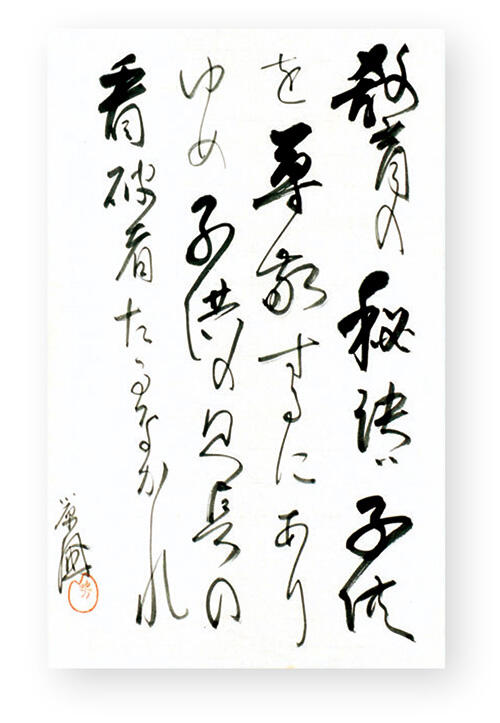 教育の秘訣ハ子供
を尊敬するにあり
ゆめ子供の長の
看破者たるなかれ
小原國
芳